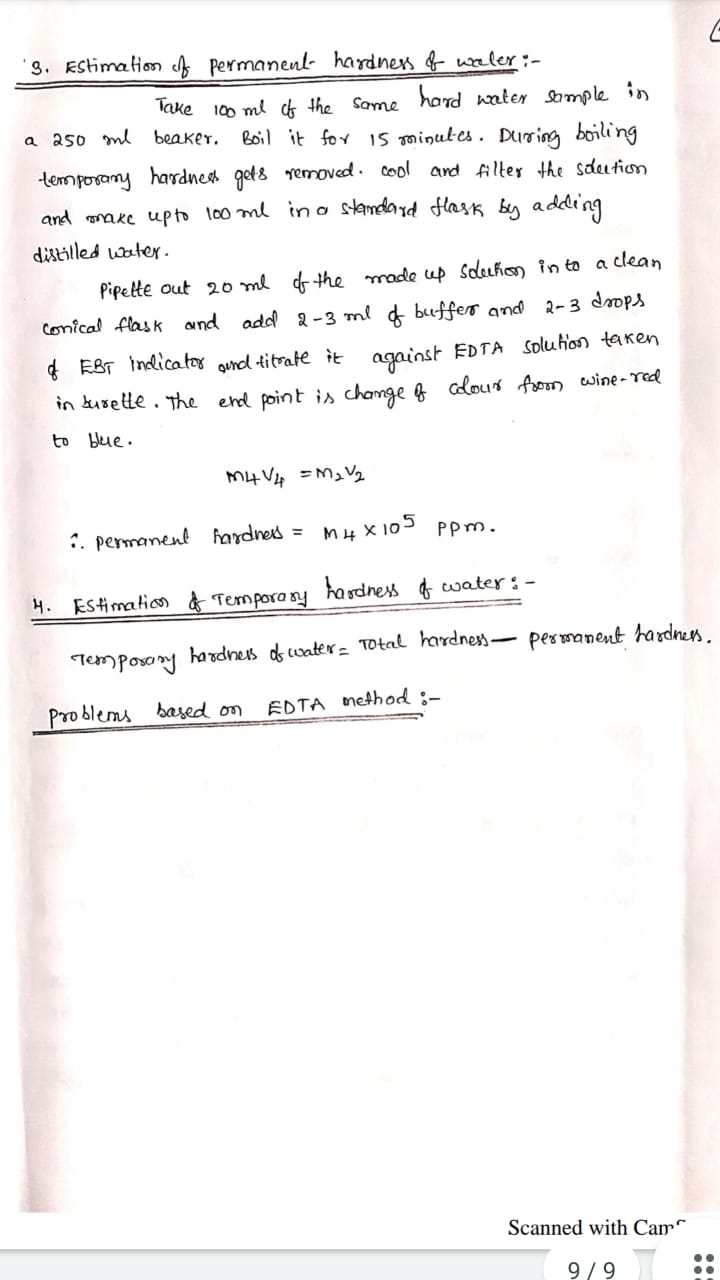 3. Estimation of permanent hardness of water :-
Take 100 ml of the same hard water sample in
a 250 ml beaker. Boil it for 15 minutes. During boiling
temporary hardness gets removed. cool and filter the solution
and make upto 100 ml in a standard flask by adding
distilled water.
Pipette out 20 ml of the made up solution in to a clean
conical flask and add 2-3 ml of buffer and 2-3 drops
of EBT indicator and titrate it against EDTA solution taken
in burette. The end point is change of colour from wine-red
to blue.
M4V4 = M2V2
∴ permanent hardness = M4 × 10⁵ ppm.
4. Estimation of Temporary hardness of water :-
Temporary hardness of water = Total hardness — permanent hardness.
Problems based on EDTA method :-
Scanned with Cam
9 / 9